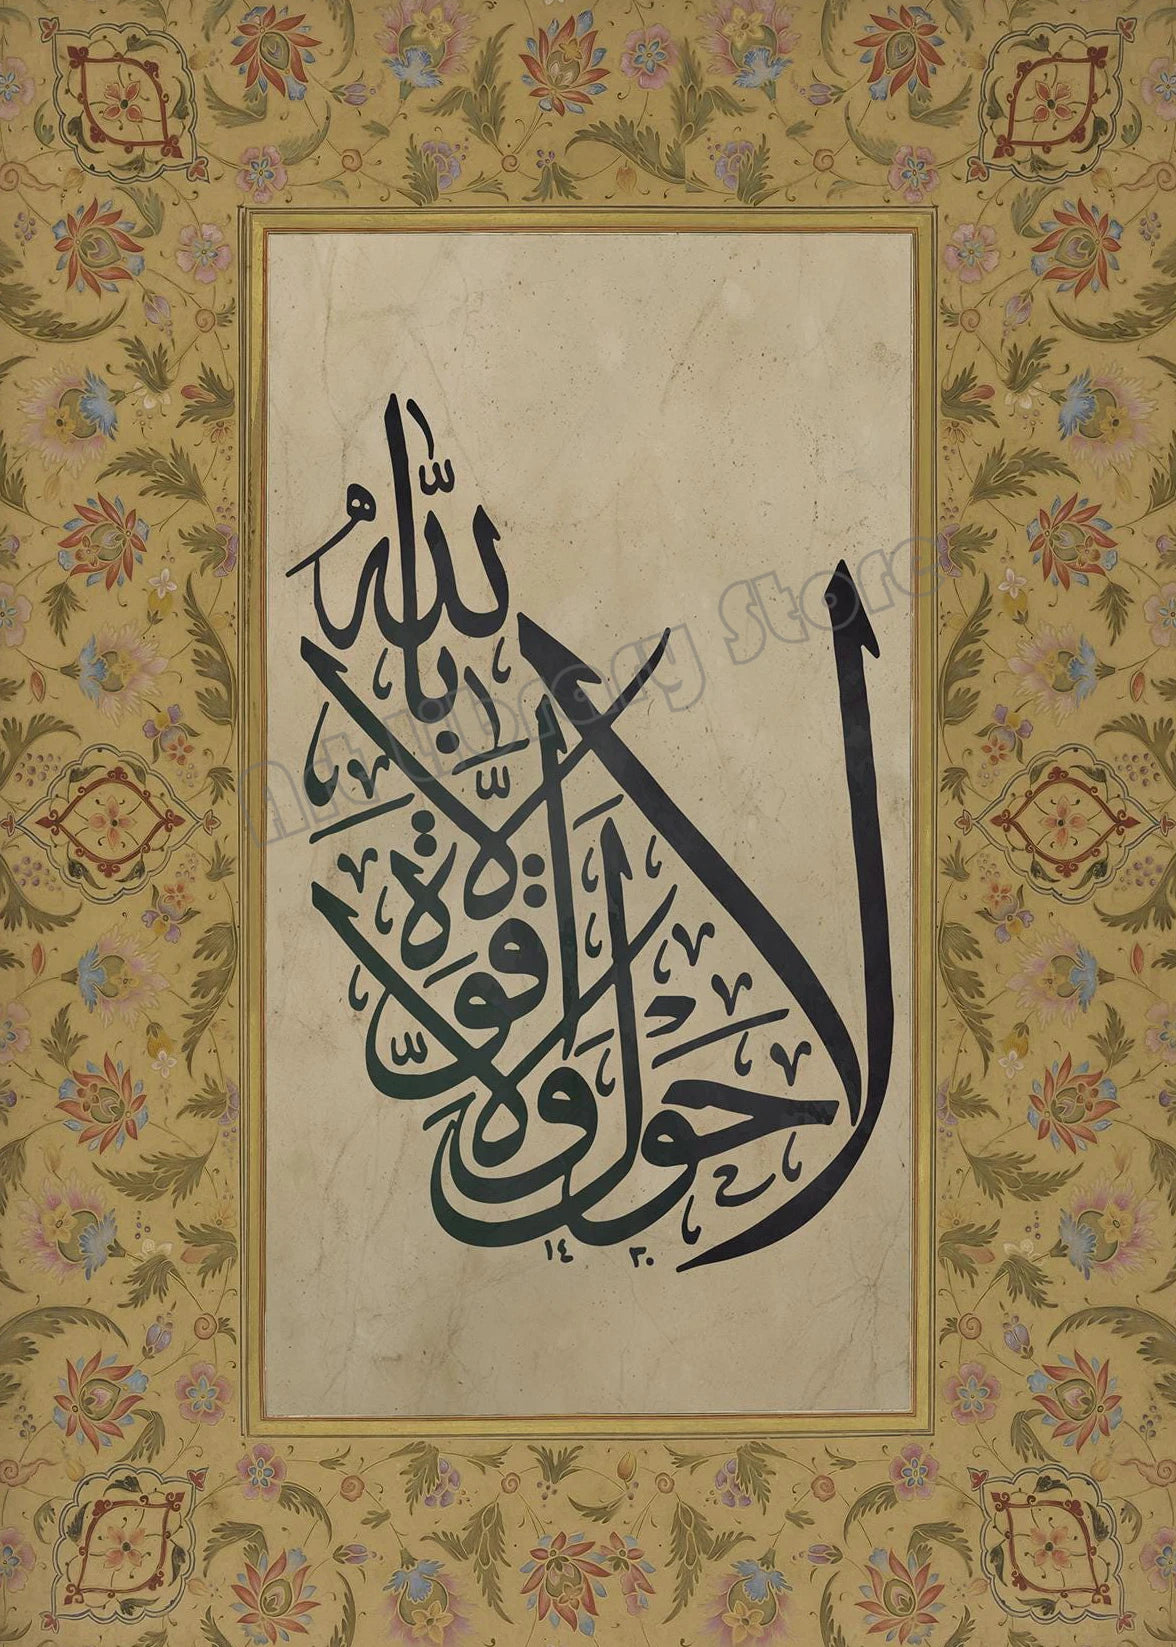 لا حول ولا قوة إلا بالله
١٤٣٠
Art Library Store